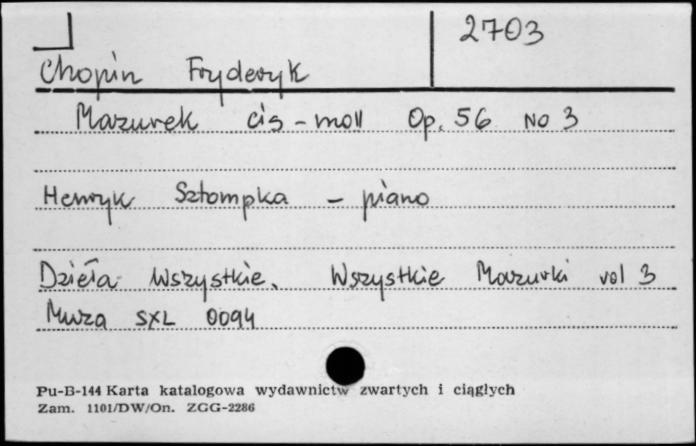 2703
Chopin Fryderyk
Mazurek cis-moll Op. 56 No 3
Henryk Sztompka - piano
Dzieła Wszystkie. Wszystkie Mazurki vol 3
Muza SXL 0094
Pu-B-144 Karta katalogowa wydawnictw zwartych i ciągłych
Zam. 1101/DW/On. ZGG-2286